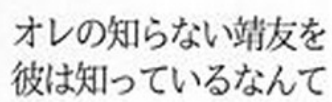 オレの知らない靖友を
彼は知っているなんて